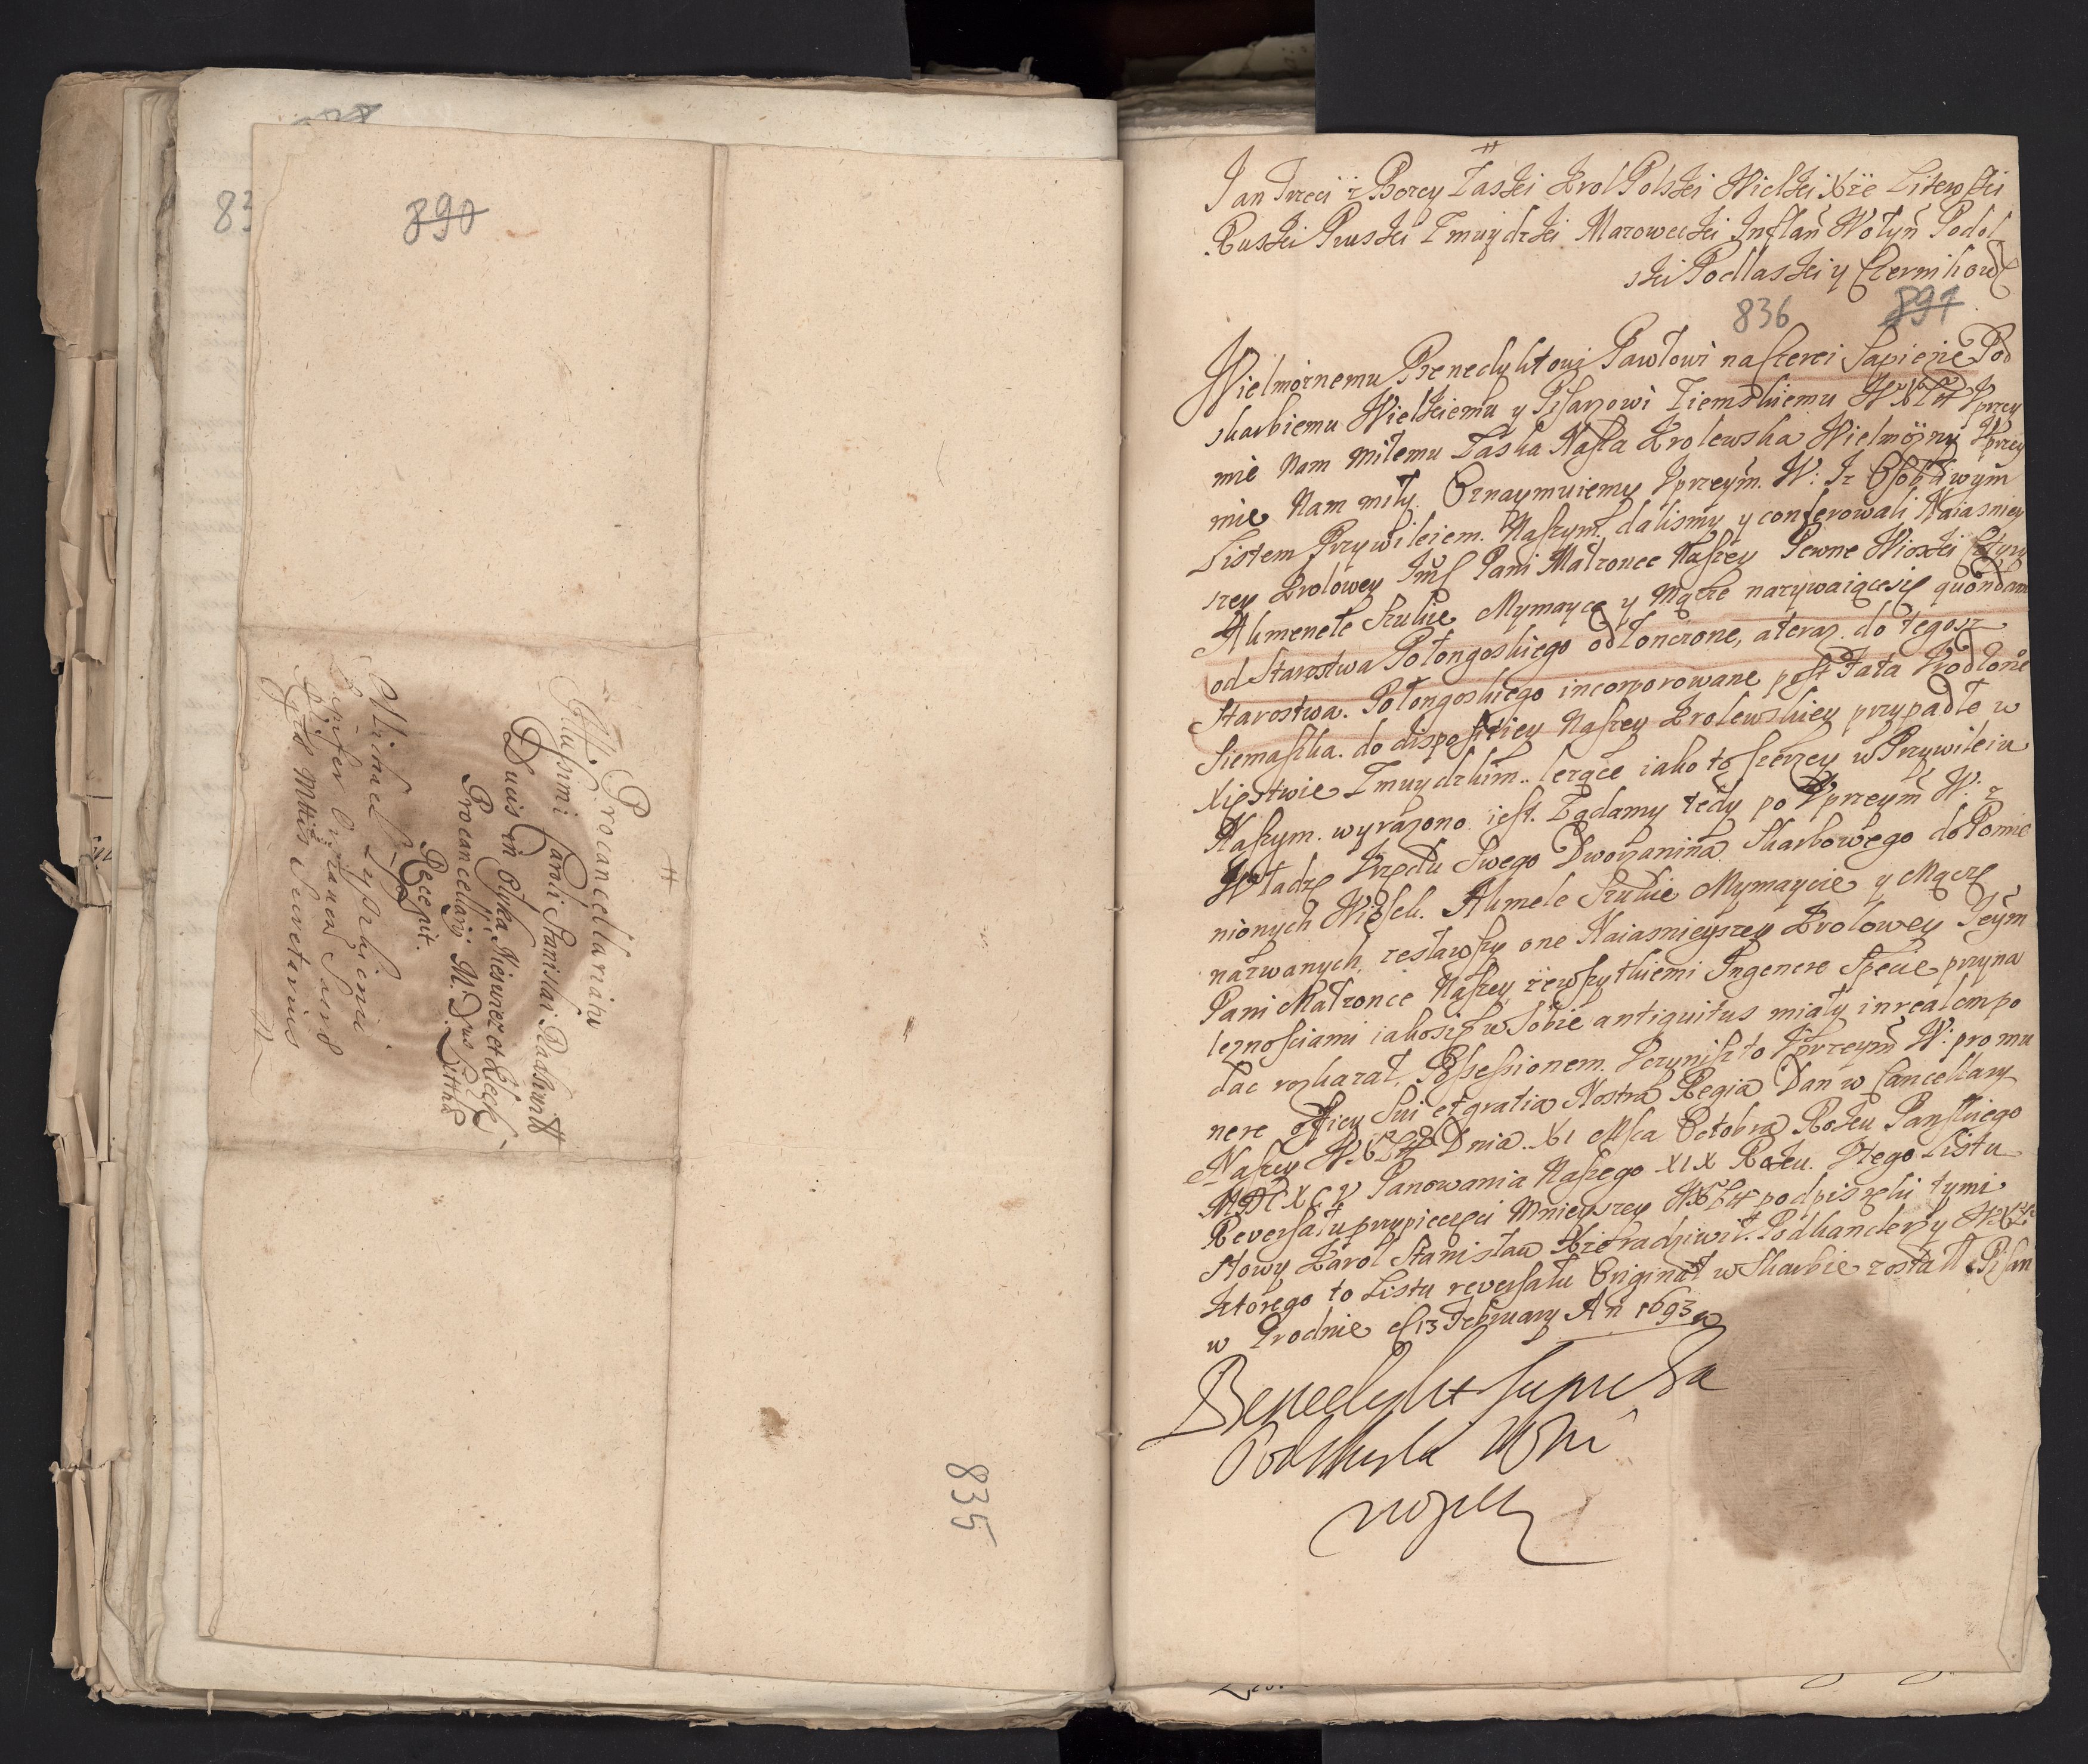 890
83
Procancellariatu
Illusmi Caroli Stanislai Radziwiłł
Ducis in Olyka Nieswiez et Kleck
Procancellarij M. D. Litthae
Recepit.
Michael
Secretarius
835
Jan Trzeci z Bozey Łaski Krol Polski Wielki Xże Litewski
Ruski Pruski Zmuydzki Mazowiecki Inflań Wołyń Podol
ski Podlaski y Czernihow
836 891
Wielmoznemu Benedyktowi Pawłowi na Czerei Sapieże Pod
skarbiemu Wielkiemu y Pisarzowi Ziemskiemu WXL Uprzey
mie Nam miłemu Łaska Nasza Krolewska Wielmożny Uprzey
mie Nam miły. Oznaymuiemy Uprzeym. W: Iz Osobliwym
Listem Przywileiem Naszym dalismy y conferowali Naiasniey
szey Krolowey Imć Pani Małzonce Naszey Pewne Wioski Cztyry
Akmenele Szukie Mymayce y Mącze nazywaiącesię quondam
od Starostwa Połongoskiego odłonczone, a teraz do tegosz
Starostwa. Połongoskiego incorporowane post Fata Urodzone
Siemaszka. do dispositiey Naszey Krolewskiey przypadłe w
Xięstwie Zmuydzkim.. lezące iako to szerzey w Przywileiu
Naszym. wyrazono iest. Ządamy tedy po Uprzeym W: z
Władzę Urzędu Swego Dworzanina Skarbowego do Pomie
nionych Wiosek. Akmele Szukie Mymaycie y Mącze
nazwanych, zesławszy one Naiasnieyszey Krolowey Jeym
Pani Małzonce Naszey, zewszytkiemi In genere Specie przyna
leznosciami iakosię w Sobie antiquitus miały in realem po
dac rozkazał, Possessionem. Uczynisz to Uprzeym W: pro mu
nere officy Sui et gratia Nostra Regia Dan w Cancellary
Naszey WXL Dnia. XI Msca Octobra Roku Panskiego
Panowania Naszego XIX Roku. U tego Listu
Reversału przy pieczęci Mnieyszey WXL podpis ręki tymi
słowy Karol Stanisław Xże Radziwił. Podkanclerzy WXL
ktorego to Listu reversału Originał w Skarbie został Pisan
w Grodnie d 13 February An 1693
Benedykt Sapieha
Podskarbi WXLi